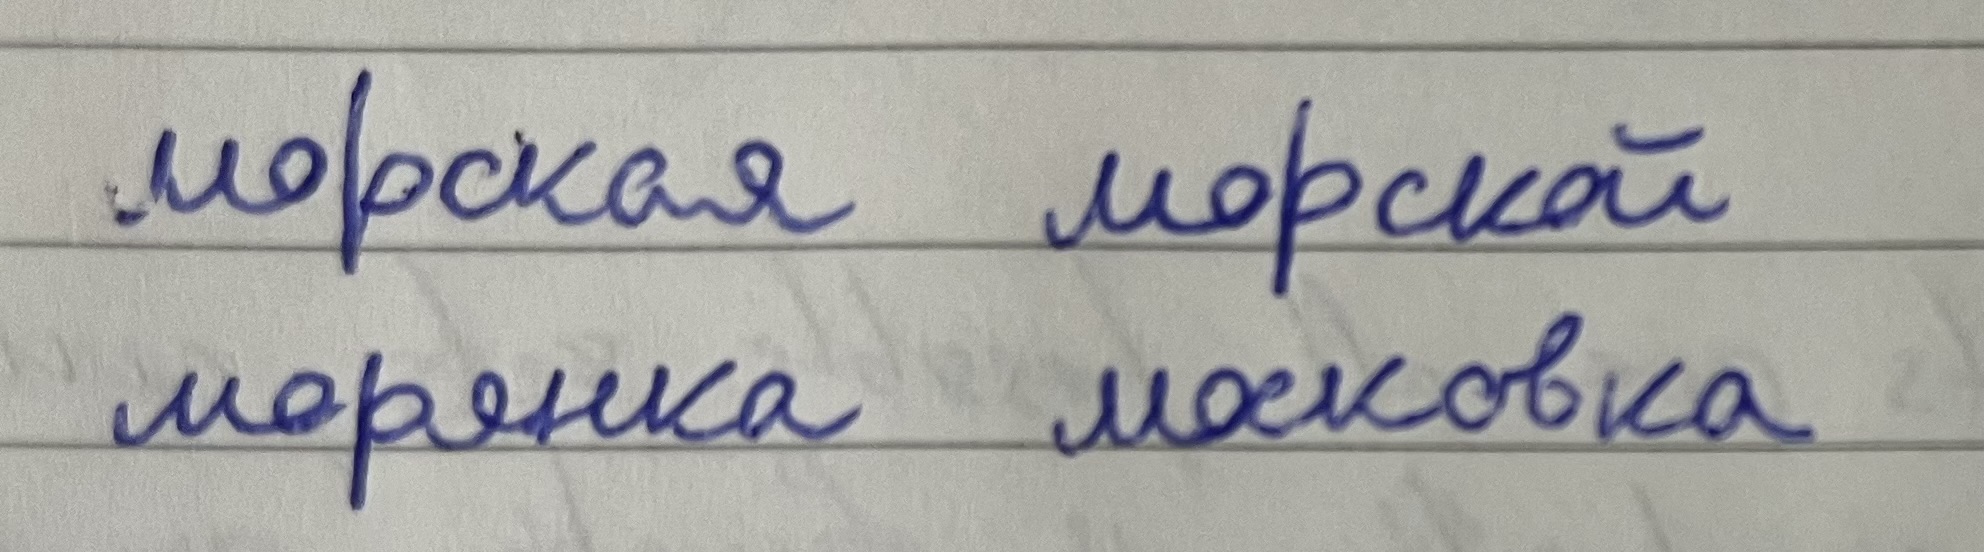 морская морской
морянка московка